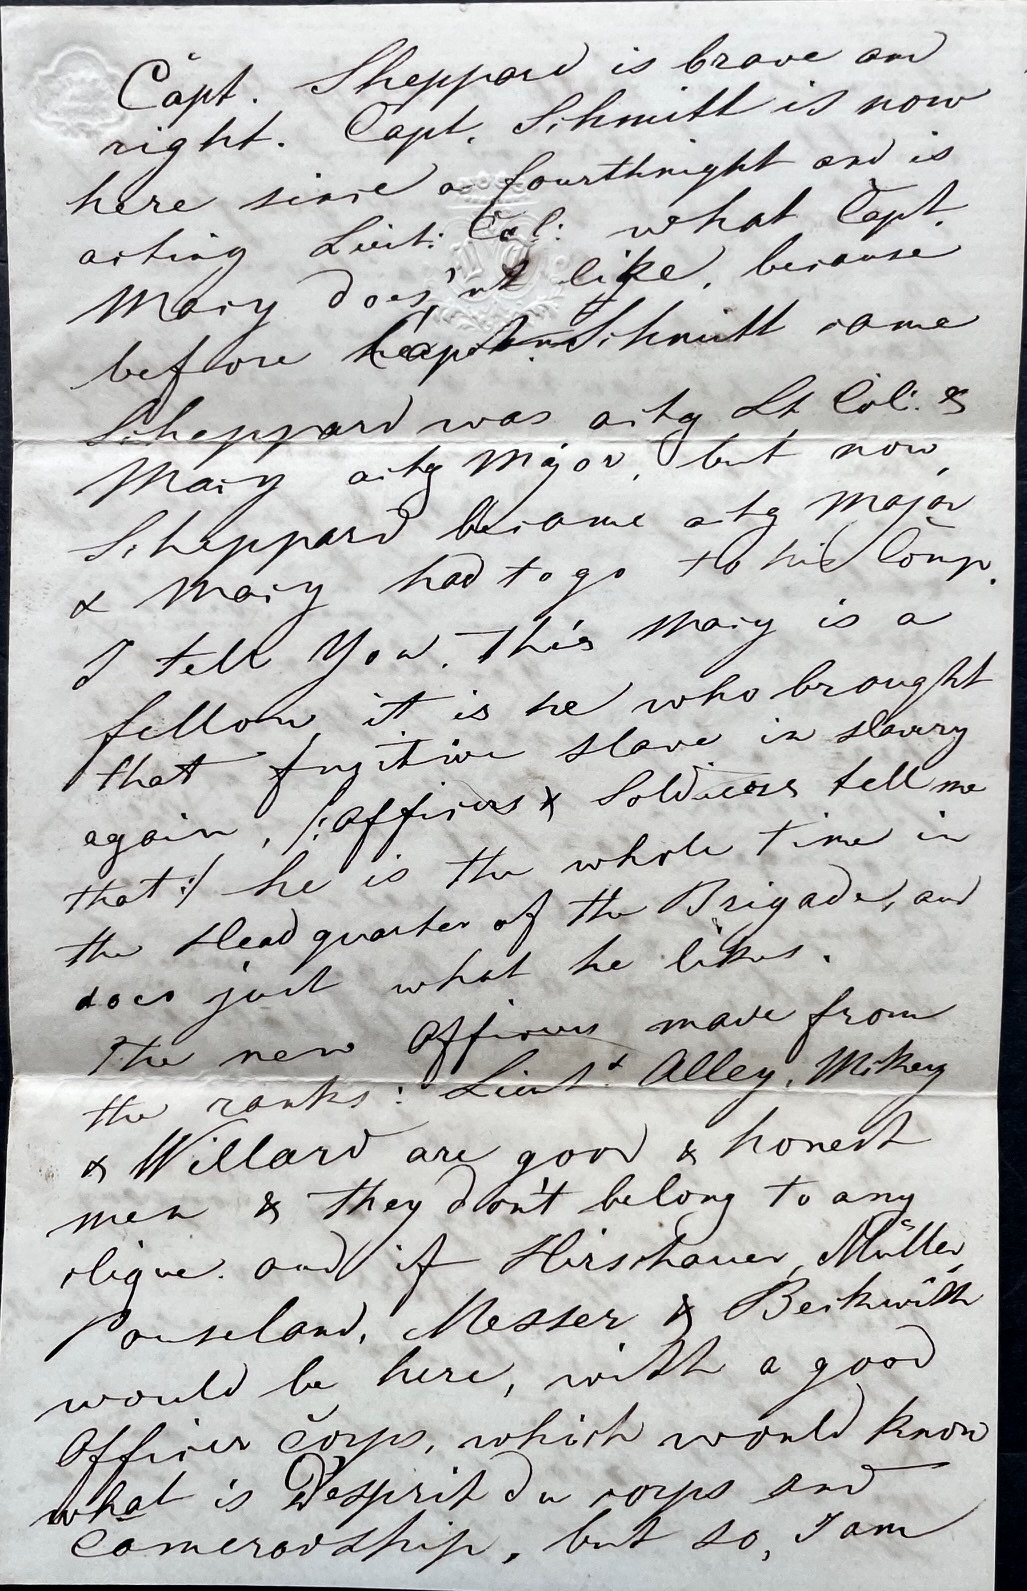 Capt. Sheppard is brave and
right. Capt. Schmitt is now
here since a fourthnight and is
acting Lieut: Col: what Capt.
Mary does'nt like, because
before Capt. Schmitt came
Scheppard was actg Lt. Col: &
Mary actg Major, but now,
Scheppard became actg Major
& Mary had to go to his Comp.
I tell You. This Mary is a
fellow, it is he who brought
that fugitive slave in slavery
again, /:Officers & Soldiers tell me
that:/ he is the whole time in
the Headquarter of the Brigade, and
does just what he likes.
The new Officers made from
the ranks: Lieut. Alley, Mikey
& Willard are good & honest
men & they don't belong to any
clique. and if Hirschauer, Müller,
Pouseland, Messer & Beckwith
would be here, with a good
Officer corps, which would know
what is D'esprit du corps and
Cameradship, but so, I am